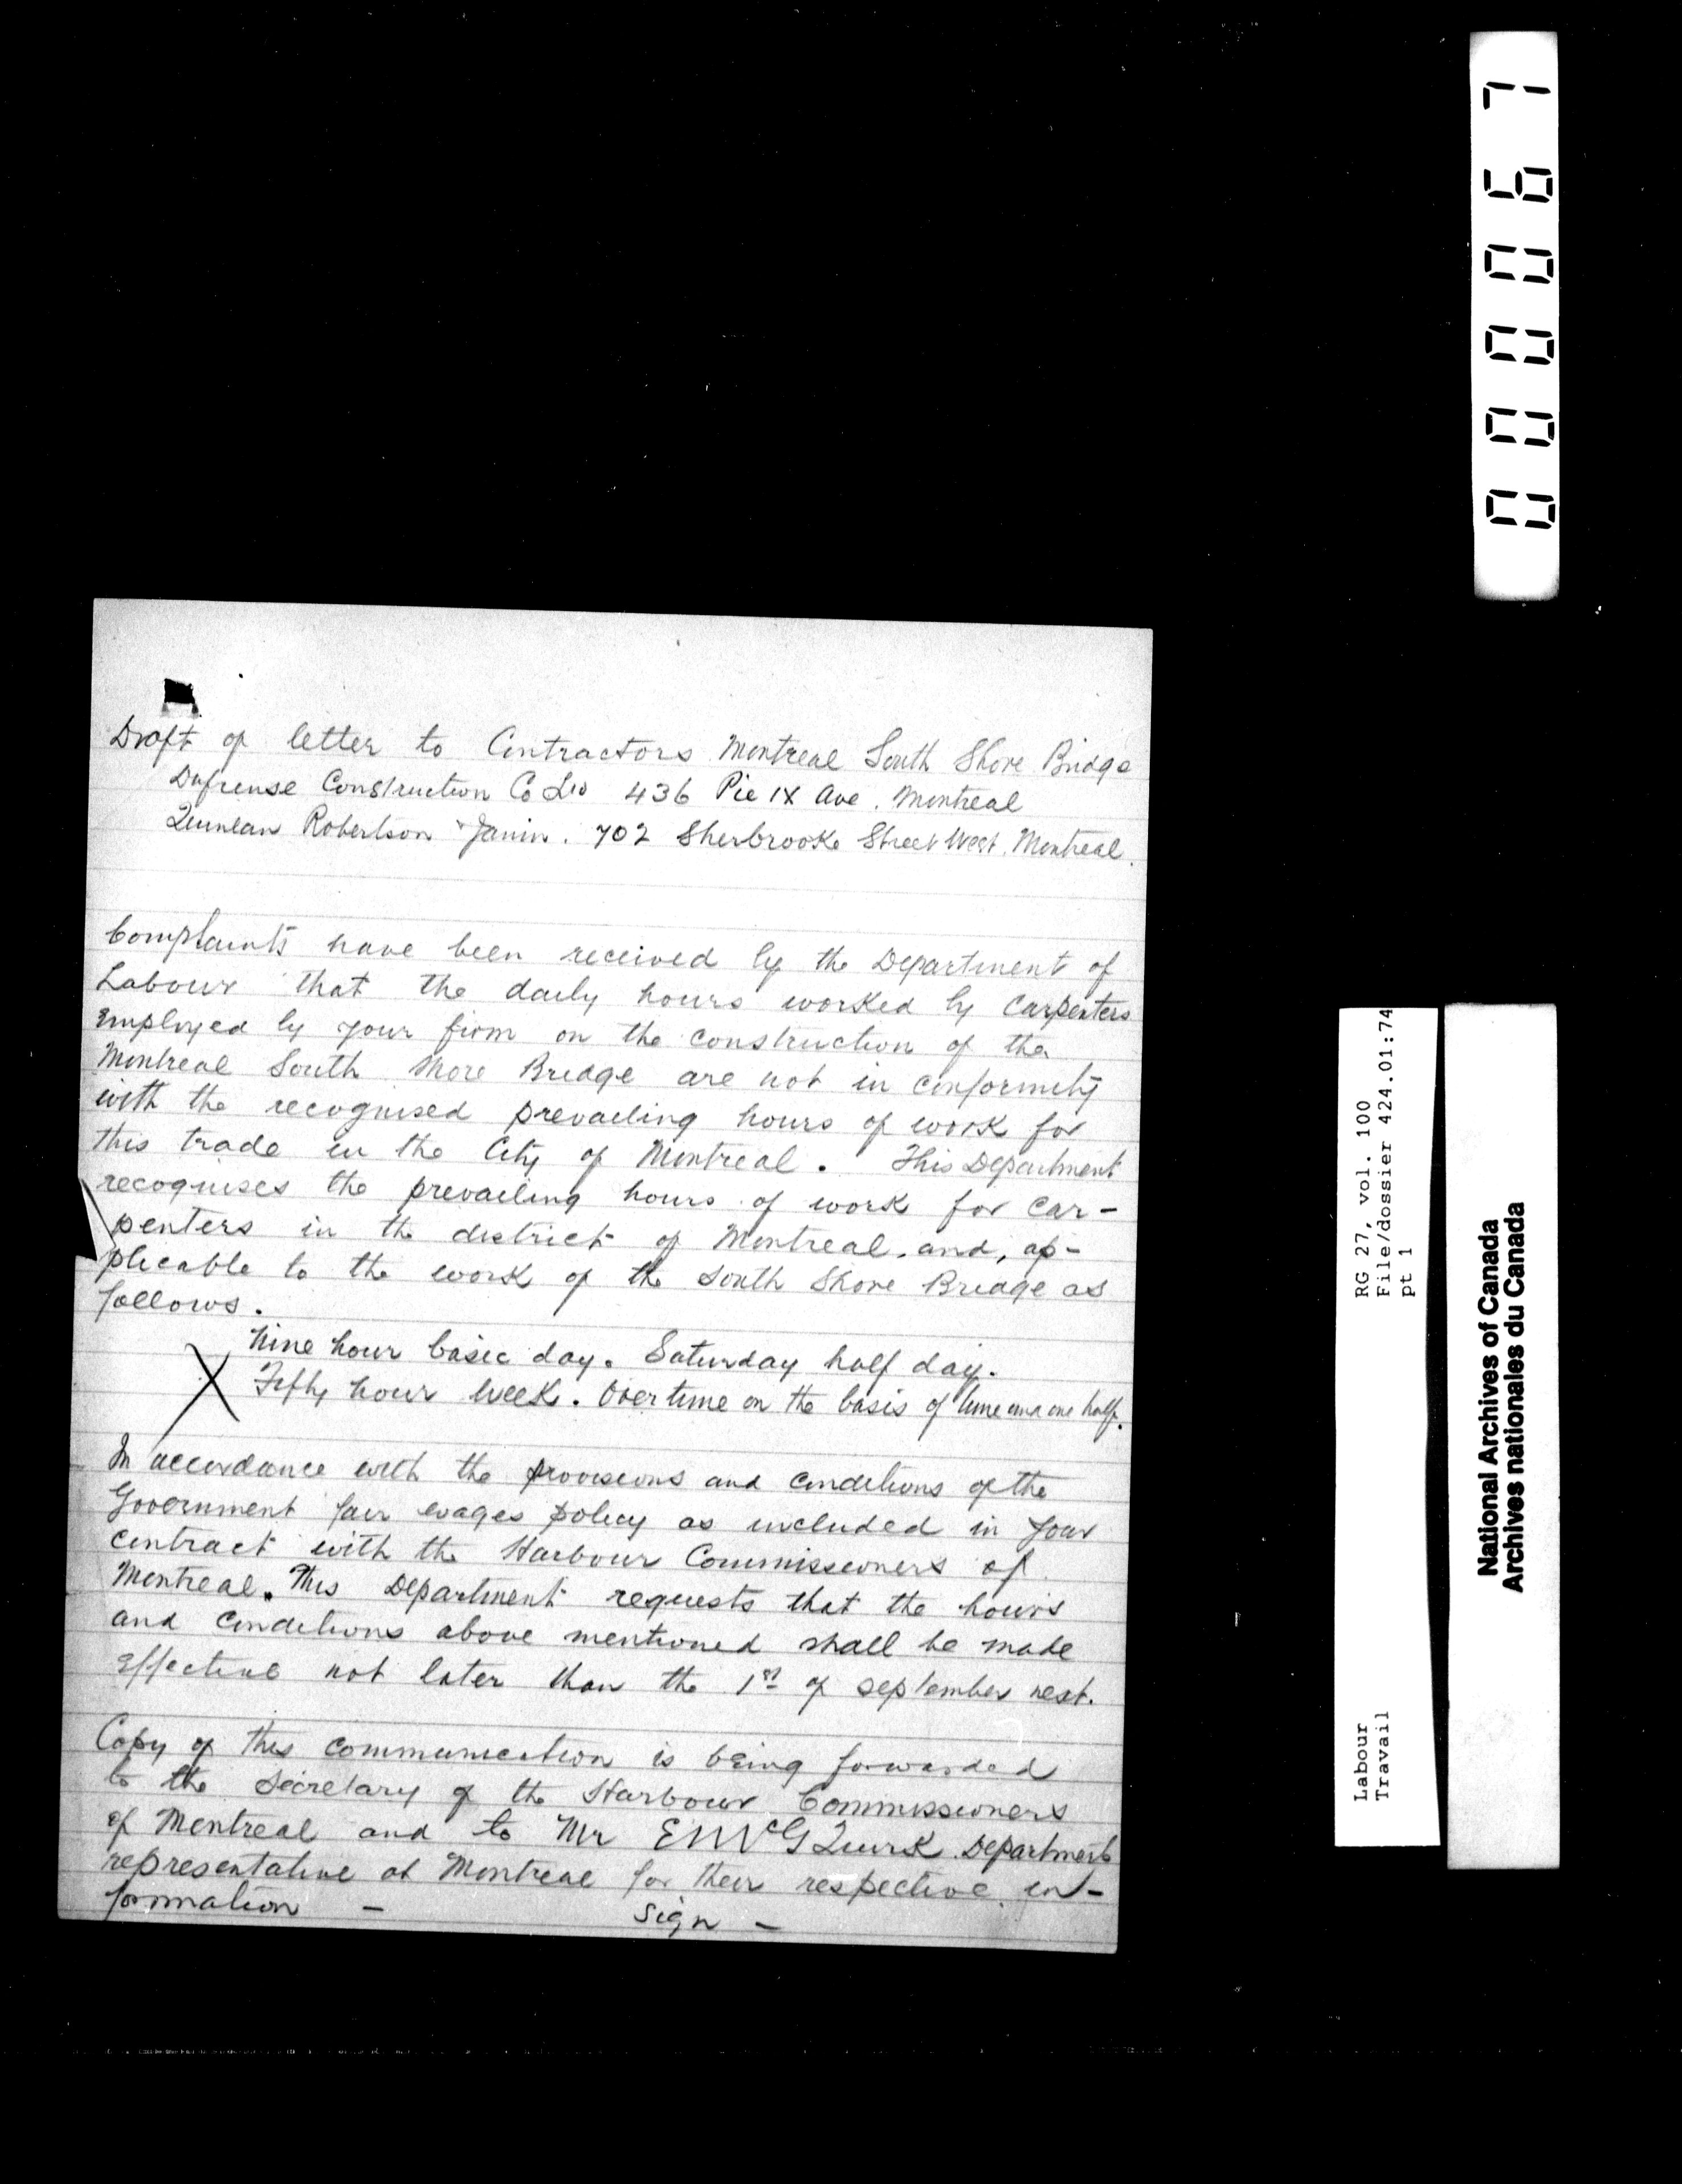 Draft of letter to Contractors Montreal South Shore Bridge
Dufrense Construction Co Ltd 436 Pie IX Ave. Montreal
Quinlan Robertson & Janin. 702 Sherbrooke Street West. Montreal.
Complaints have been received by the Department of
Labour that the daily hours worked by Carpenters
Employed by your firm on the construction of the
Montreal South Shore Bridge are not in conformity
with the recognised prevailing hours of work for
this trade in the City of Montreal. This Department
recognises the prevailing hours of work for Car-
penters in the district of Montreal, and, ap-
plicable to the work of the South Shore Bridge as
follows.
Nine hour basic day. Saturday half day.
X Fifty hour week. Overtime on the basis of time and one half.
In accordance with the provisions and conditions of the
Government fair wages policy as included in your
contract with the Harbour Commissioners of
Montreal. This Department requests that the hours
and conditions above mentioned shall be made
effective not later than the 1st of september next.
Copy of this communication is being forwarded
to the Secretary of the Harbour Commissioners
of Montreal and to Mr E McG Quirk Department
representative at Montreal for their respective in-
formation - sign -
000067
Labour RG 27, vol. 100
Travail File/dossier 424.01:74
pt 1
National Archives of Canada
Archives nationales du Canada